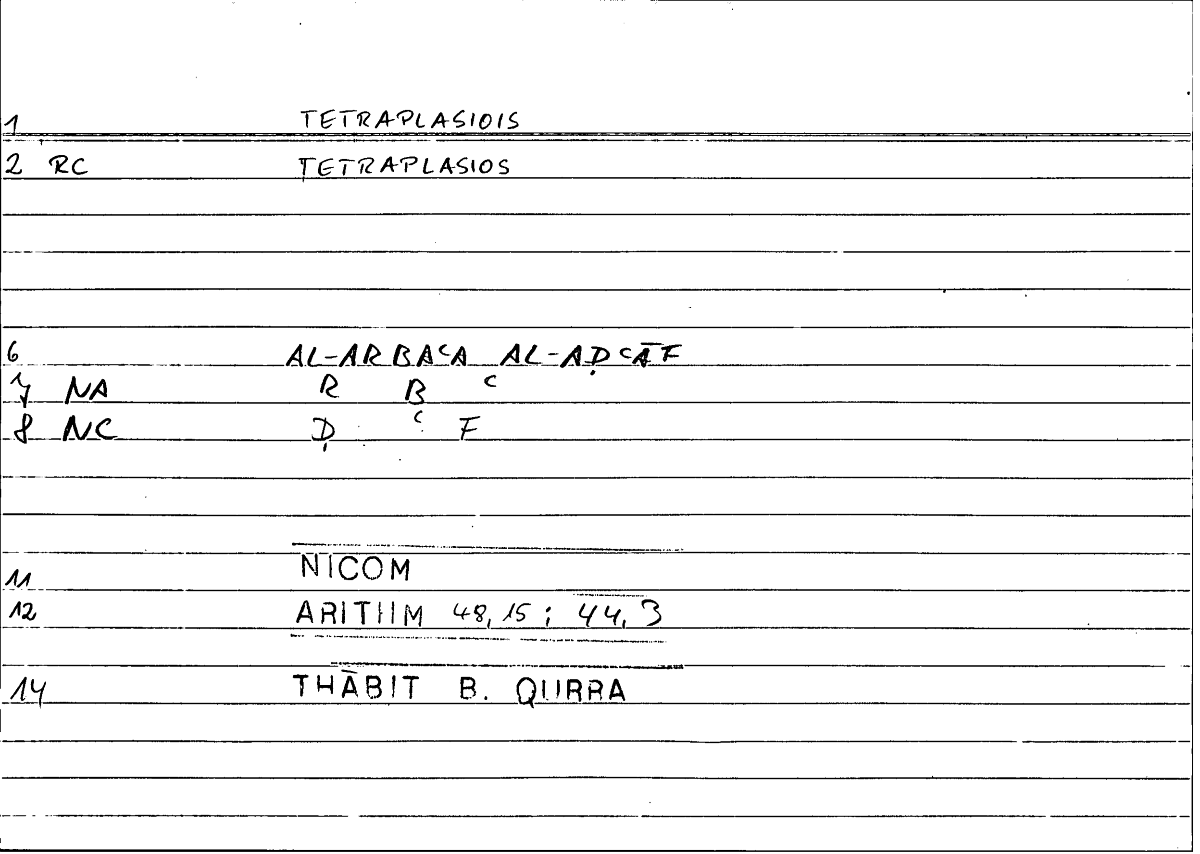 1 TETRAPLASIOIS
2 RC TETRAPLASIOS
6 AL-ARBAʿA AL-AḌʿĀF
7 NA R B ʿ
8 NC Ḍ ʿ F
11 NICOM
12 ARITHM 48,15; 44,3
14 THĀBIT B. QURRA